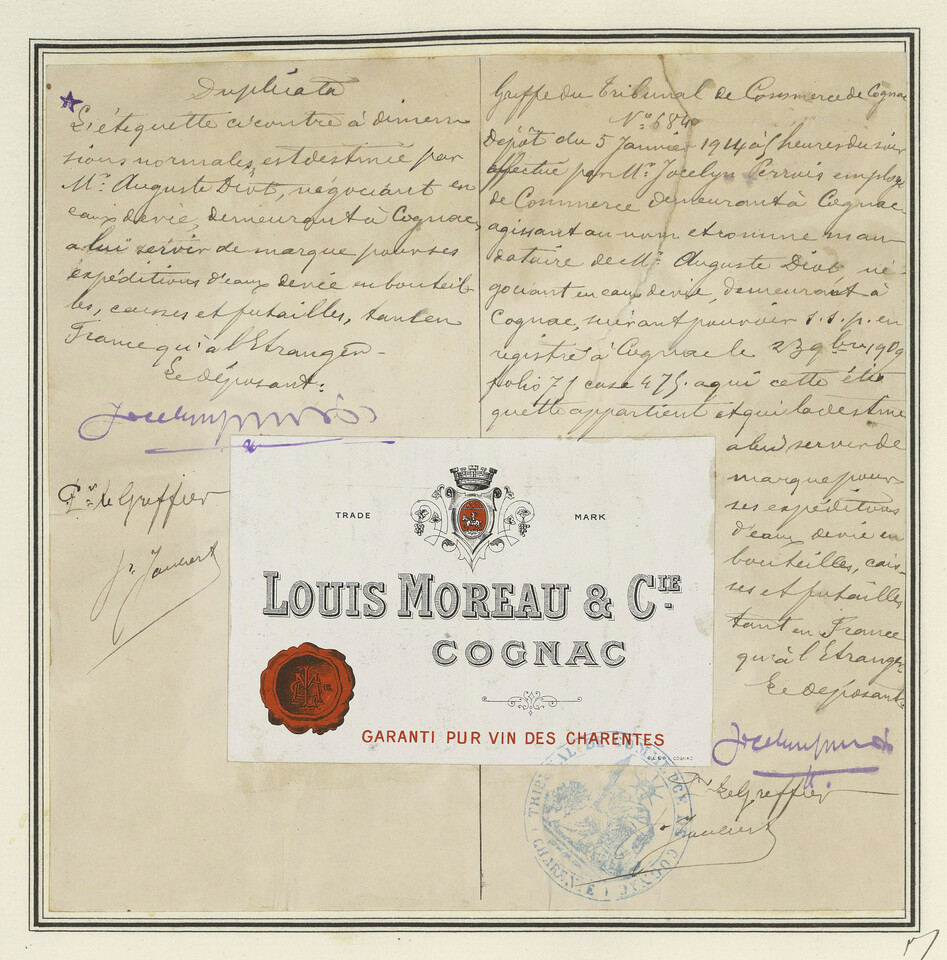 Duplicata
L'étiquette ci contre à dimen
sions normales, est destinée par
Mr. Auguste Divt, négociant en
eaux de vie, demeurant à Cognac,
a lui servir de marque pour ses
expéditions d'eaux de vie en bouteil-
les, caisses et futailles, tant en
France qu'à l'Etranger.
Le déposant:
Pr. le Greffier
Greffe du Tribunal de Commerce de Cognac
No 684
Dépôt du 5 Janvier 1914 à 5 heures du soir
effectué par Mr. Jocelyn Perrois employé
de Commerce demeurant à Cognac
agissant au nom et comme man-
dataire de Mr. Auguste Divt né-
gociant en eaux de vie, demeurant à
Cognac, suivant pouvoir s.s.p. en
registré à Cognac le 23 9bre 1909
folio 71 case 475. a qui cette éti
quette appartient et qui la destine
a lui servir de
marque pour
ses expéditions
d'eaux de vie en
bouteilles, cais-
ses et futailles
tant en France
qu'à l'Etranger.
Le déposant.
Pr. Le Greffier
TRADE MARK
LOUIS MOREAU & CIE.
COGNAC
GARANTI PUR VIN DES CHARENTES
TRIBUNAL DE COMMERCE DE COGNAC
CHARENTE